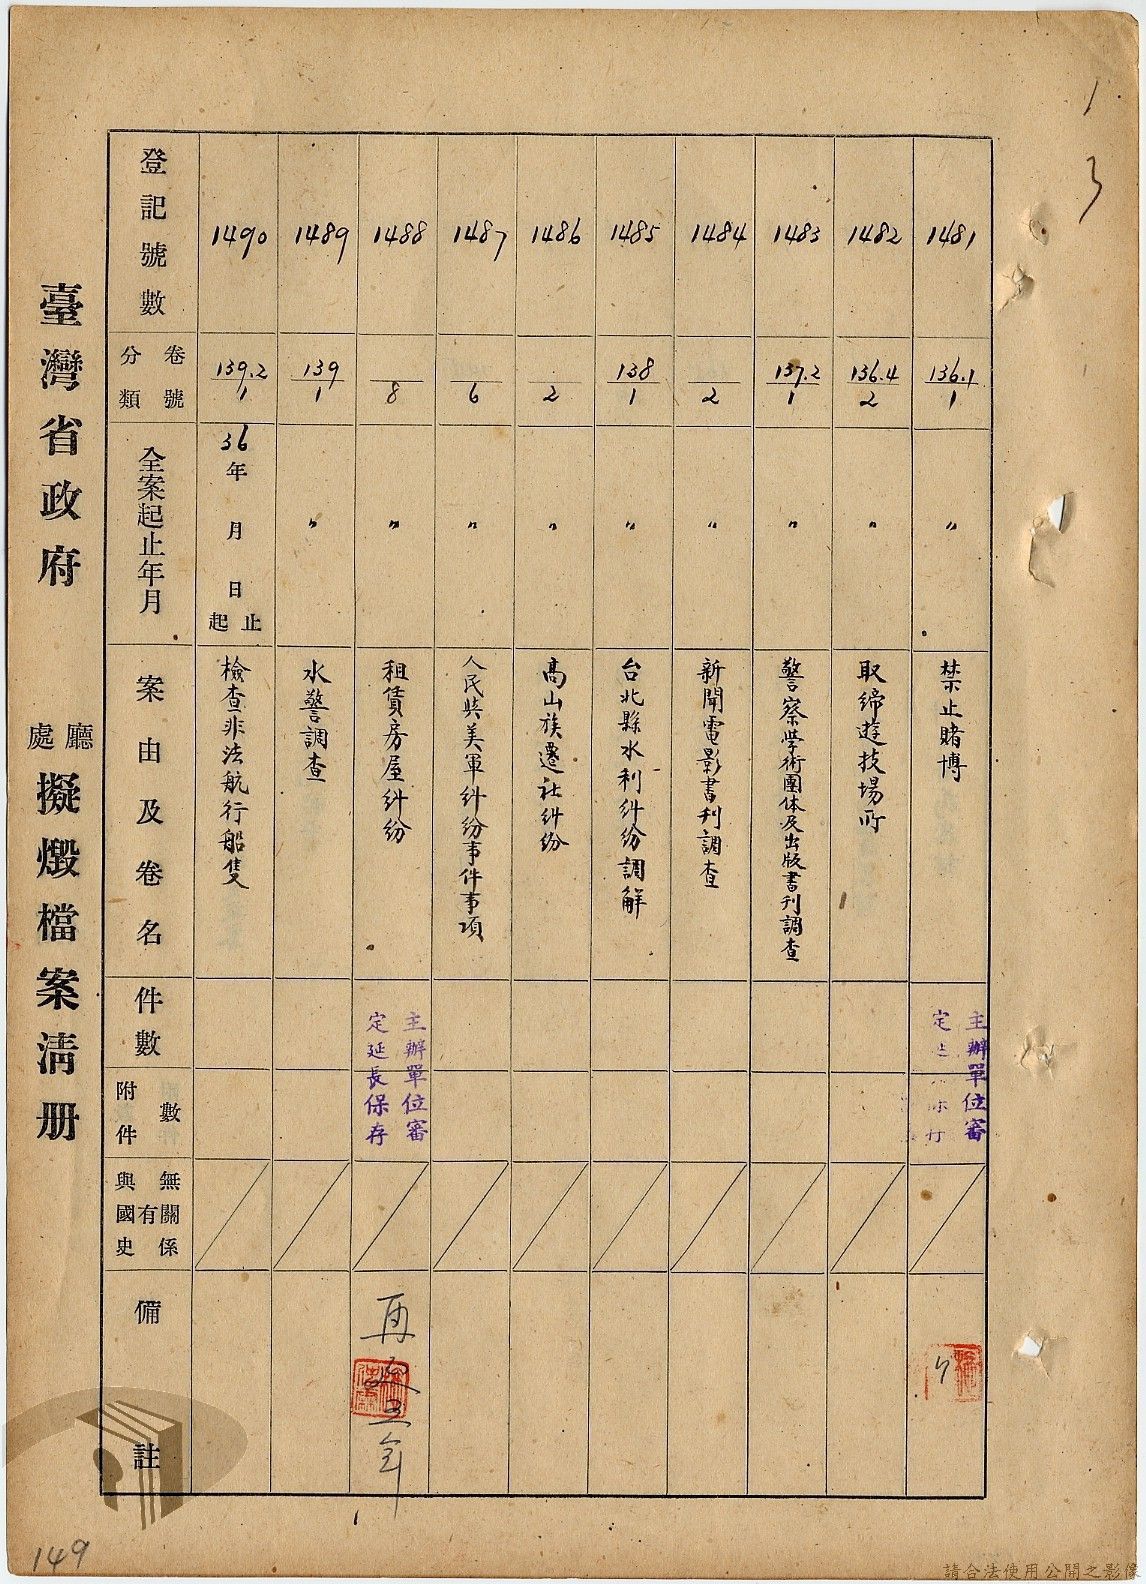 1
3
臺灣省政府 廳處 擬燬檔案淸册
登記號數
分類 卷號
全案起止年月
案由及卷名
件數
附件 數
與國史 有 無關係
備 註
1490
139.2
1
36年 月 日 起 止
檢查非法航行船隻
1489
139
1
〃
水警調查
1488
8
〃
租賃房屋糾紛
主辦單位審
定延長保存
再延五年
1487
6
〃
人民與美軍糾紛事件事項
1486
2
〃
高山族遷社糾紛
1485
138
1
〃
台北縣水利糾紛調解
1484
2
〃
新聞電影書刊調查
1483
137.2
1
〃
警察學術團体及出版書刊調查
1482
136.4
2
〃
取締遊技場所
1481
136.1
1
〃
禁止賭博
主辦單位審
定
149
請合法使用公開之影像